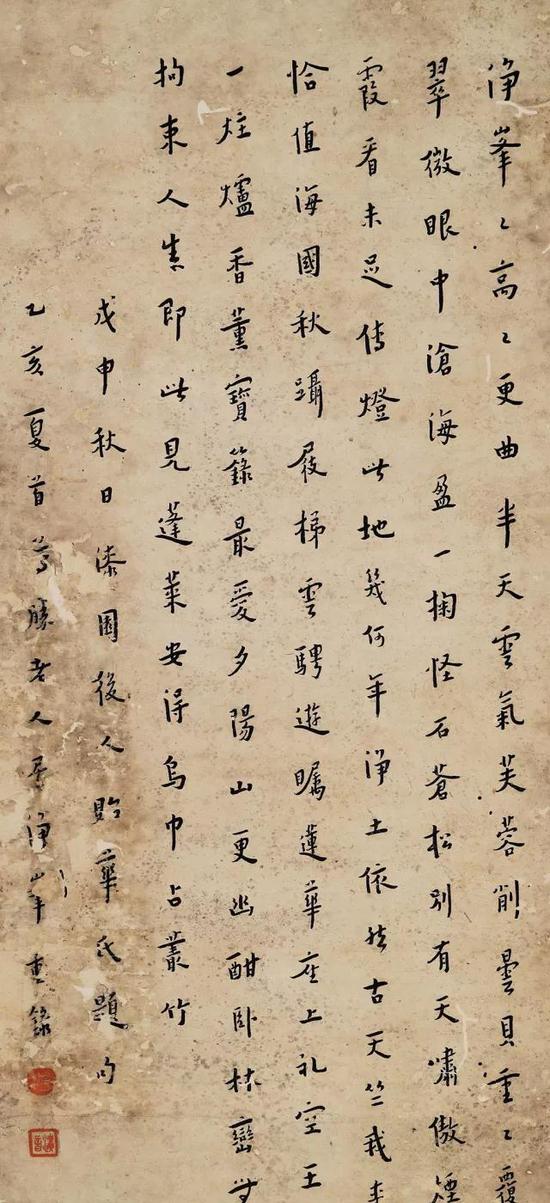 淨峯〻高〻更曲半天雲氣芙蓉削曇貝重〻覆
翠微眼中滄海盈一掬怪石蒼松別有天嘯傲煙
霞看未足傳燈此地幾何年淨土依然古天竺我来
恰值海國秋躡屐梯雲騁遊矚蓮華座上礼空王
一炷爐香薰寶籙最愛夕陽山更幽酣卧林巒無
拘束人生即此見蓬萊安得烏巾占叢竹
戊申秋日漆園後人貽華氏題句
乙亥夏首尊勝老人居淨峯重錄